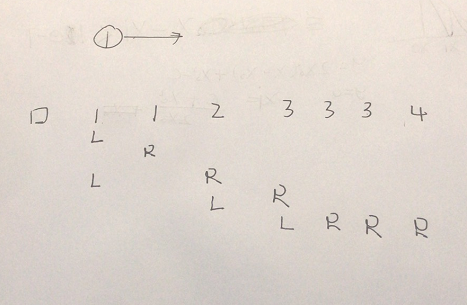 1
1 1 2 3 3 3 4
L
R
L R
L R
L R R R